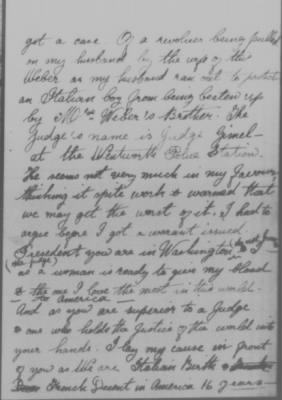 got a case. Of a revolver being pulled
on my husband by the wife of this
Weber as my husband ran out to protect
an Italian boy from being beten up
by Mrs Weber's Brother. The
Judge's name is Judge Gimel-
at the Wentworth Police Station.
He seems not very much in my favor
thinking it spite work & warned that
we may get the worst of it. I had to
argue before I got a warant issued.
President you are in Washington
as a woman is ready to give my blood
to the one I love the most in this world.
to America -
And as you are superior to a Judge
& one who holds the Justice of this world into
your hands. I lay my cause in front
of you as We are Italian Birth &
French Decent in America 16 years-